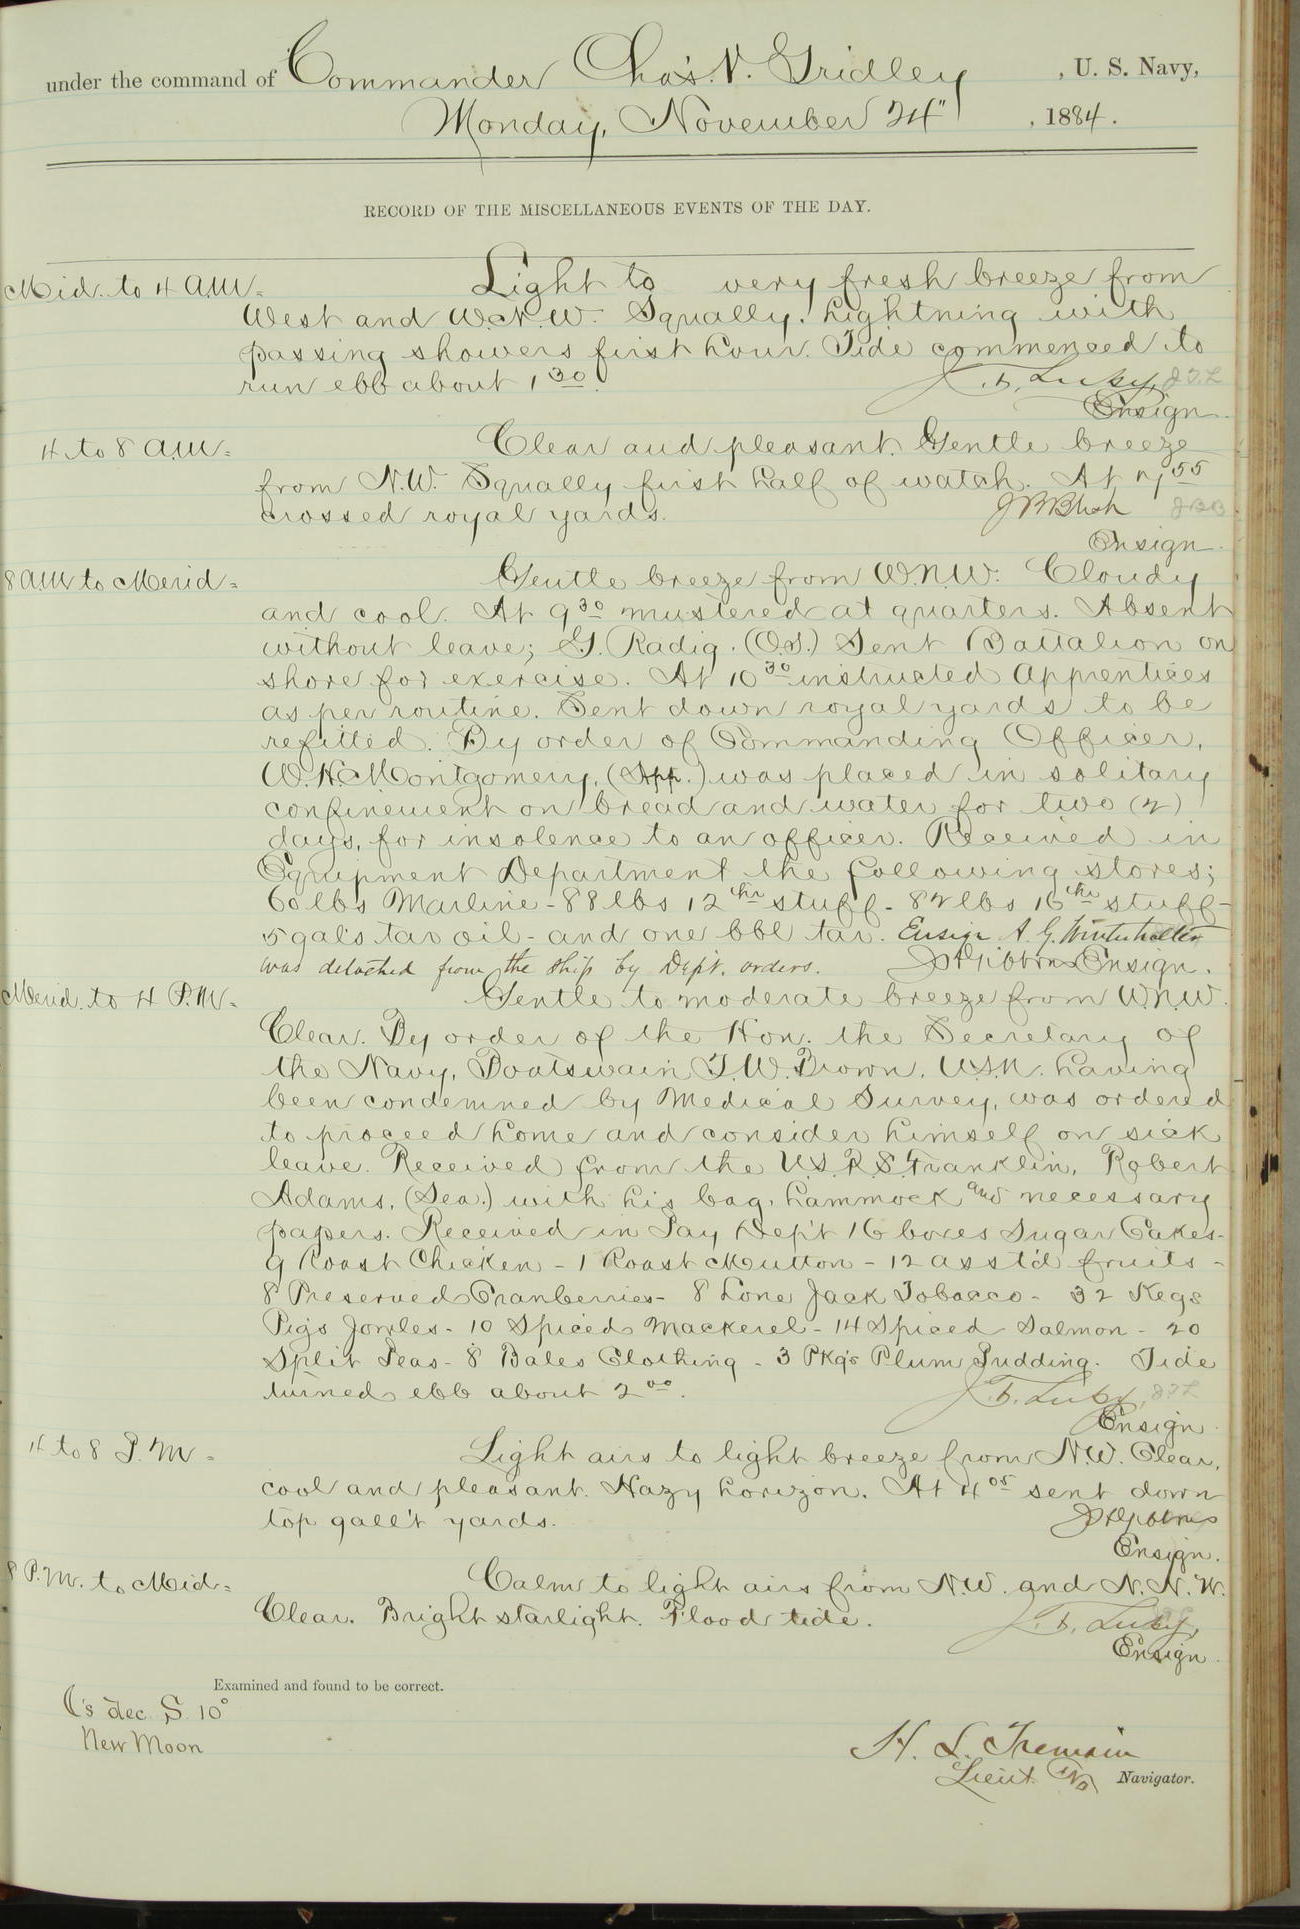 under the command of Commander Chas. V. Gridley, U. S. Navy,
Monday, November 24", 1884.
RECORD OF THE MISCELLANEOUS EVENTS OF THE DAY.
Mid. to 4 A.M. Light to very fresh breeze from
West and W.N.W. Squally. Lightning with
passing showers first hour. Tide commenced to
run ebb about 1 30. J. F. Luby, J.F.L
Ensign.
4 to 8 A.M. Clear and pleasant. Gentle breeze
from N.W. Squally first half of watch. At 7 55
crossed royal yards. J B Blish JBB
Ensign.
8 A.M to Merid Gentle breeze from W.N.W. Cloudy
and cool. At 9 30 mustered at quarters. Absent
without leave; G. Radig. (O.S.) Sent Battalion on
shore for exercise. At 10 30 instructed Apprentices
as per routine. Sent down royal yards to be
refitted. By order of Commanding Officer,
W. H. Montgomery, (App.) was placed in solitary
confinement on bread and water for two (2)
days, for insolence to an officer. Received in
Equipment Department the following stores;
60 lbs Marline - 88 lbs 12 thr stuff - 82 lbs 15 thr stuff -
5 gals tar oil - and one bbl tar. Ensign A. G. Winterhalter
was detached from the ship by Dept. orders. J H Gibbons Ensign.
Merid. to 4 P.M. Gentle to moderate breeze from W.N.W.
Clear. By order of the Hon. the Secretary of
the Navy, Boatswain T. W. Brown, U.S.N. having
been condemned by Medical Survey, was ordered
to proceed home and consider himself on sick
leave. Received from the U.S.R.S. Franklin, Robert
Adams, (Sea.) with his bag, hammock and necessary
papers. Received in Pay Dep't 16 boxes Sugar Cakes -
9 Roast Chicken - 1 Roast Mutton - 12 ass't'd fruits -
8 Preserved Cranberries - 8 Lone Jack Tobacco - 32 Kegs
Pigs Jowles - 10 Spiced Mackerel - 14 Spiced Salmon - 20
Split Peas - 8 Bales Clothing - 3 Pkg's Plum Pudding. Tide
turned ebb about 2 00. J. F. Luby, J.F.L
Ensign.
4 to 8 P.M Light airs to light breeze from N.W. Clear,
cool and pleasant. Hazy horizon. At 4 05 sent down
top gall't yards. J H Gibbons
Ensign.
8 P.M. to Mid Calm to light airs from N.W. and N.N.W.
Clear. Bright starlight. Flood tide. J. F. Luby,
Ensign.
Examined and found to be correct.
☾'s dec S 10°
New Moon
H. L. Tremain
Lieut Navigator.